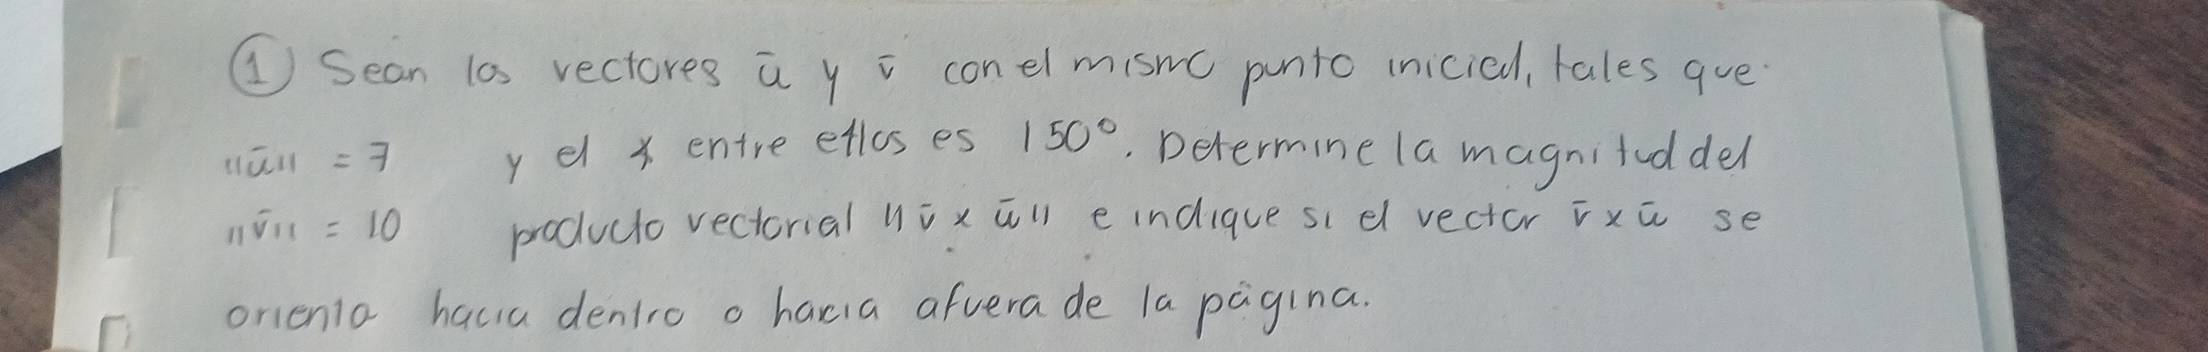 ① Sean los vectores ū y v̄ con el mismo punto inicial, tales que
||ū|| = 7 y el ∡ entre ellos es 150°. Determine la magnitud del
||v̄|| = 10 producto vectorial ||v̄ x ū|| e indique si el vector v̄ x ū se
orienta hacia dentro o hacia afuera de la página.